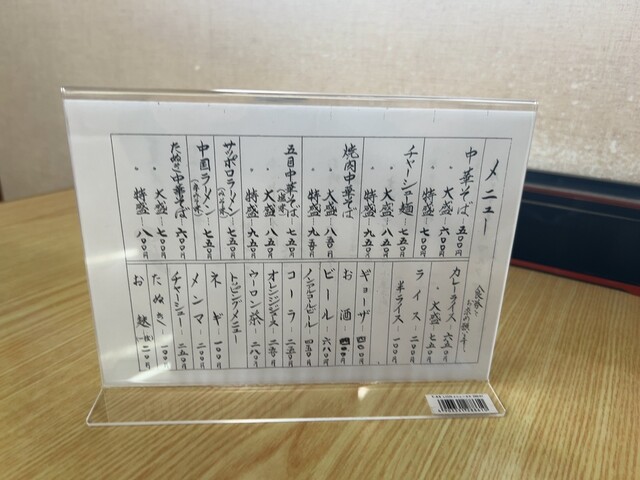 メニュー
中華そば 五〇〇円
〃 大盛 六〇〇円
〃 特盛 七〇〇円
チャーシュー麺 七五〇円
〃 大盛 八五〇円
〃 特盛 九五〇円
焼肉中華そば 七五〇円
〃 大盛 八五〇円
〃 特盛 九五〇円
五目中華そば 七五〇円
(塩味)
〃 大盛 八五〇円
〃 特盛 九五〇円
サッポロラーメン 七五〇円
(みそ味)
中国ラーメン 七五〇円
たぬき中華そば 六〇〇円
〃 大盛 七〇〇円
〃 特盛 八〇〇円
カレーライス 六五〇円
〃 大盛 七五〇円
ライス 二〇〇円
半ライス 一〇〇円
ギョーザ 四〇〇円
お酒 四〇〇円
ビール 六八〇円
ノンアルコールビール 四五〇円
コーラ 二五〇円
オレンジジュース 二五〇円
ウーロン茶 二八〇円
トッピングメニュー
ネギ 一〇〇円
メンマ 二〇〇円
チャーシュー 二五〇円
たぬき 一〇〇円
お麩(一枚) 二〇円